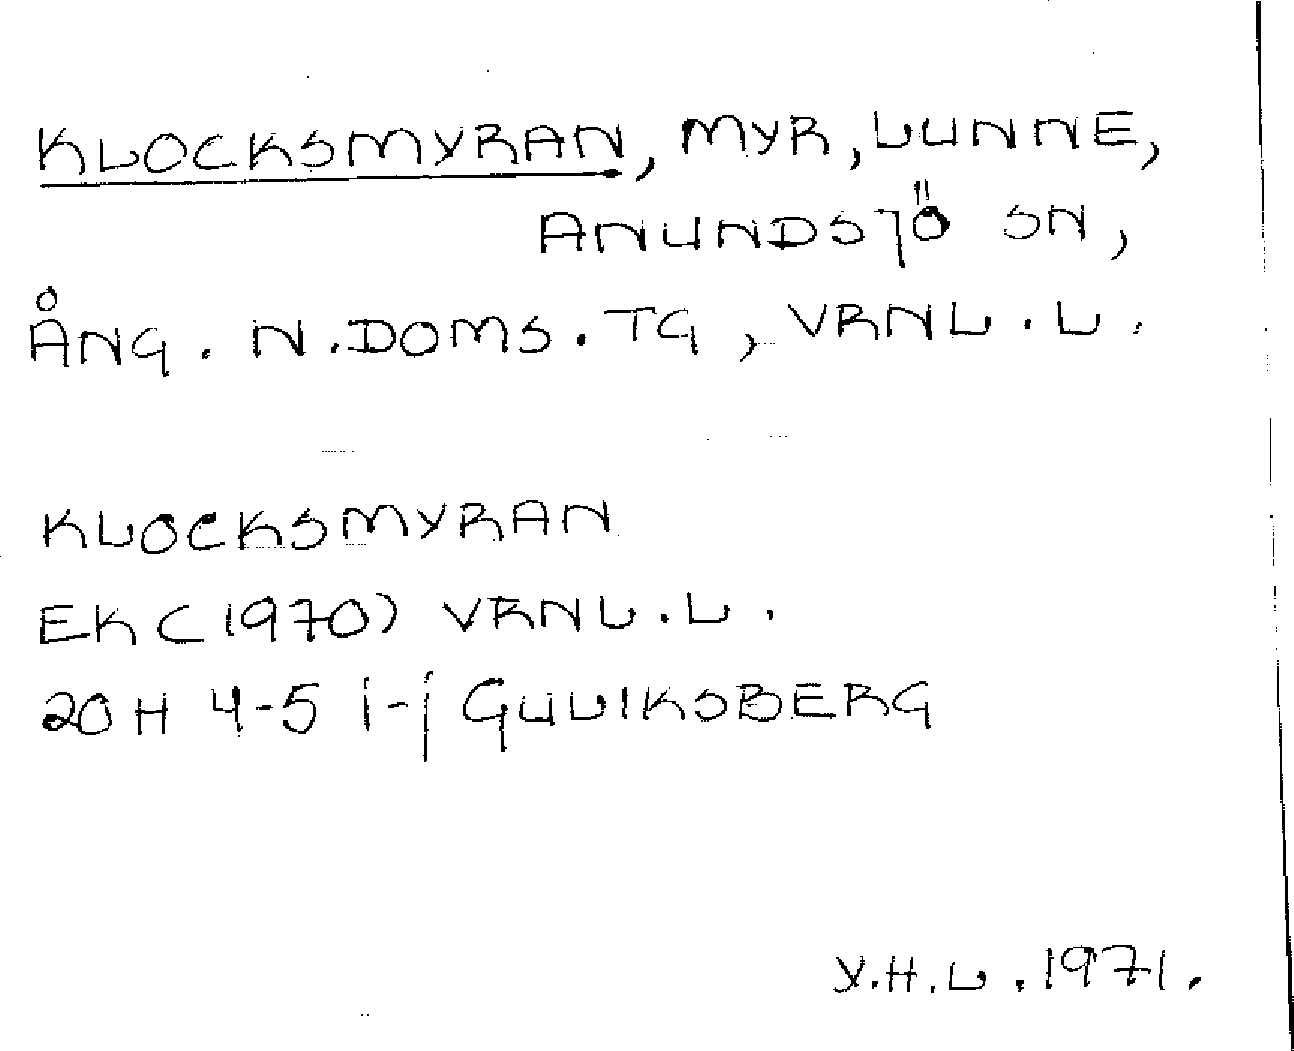 KLOCKSMYRAN, MYR, LUNNE,
ANUNDSJÖ SN,
ÅNG. N. DOMS. TG, VRNL. L.
KLOCKSMYRAN
EK (1970) VRNL. L.
20 H 4-5 i-j GULIKSBERG
Y.H.L. 1971.